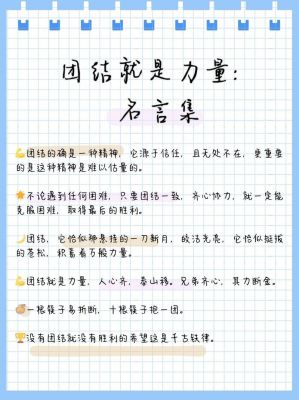 团结就是力量：
名言集
💪团结的确是一种精神，它源于信任，且无处不在，更重要
的是这种精神是难以估量的。
⭐不论遇到任何困难，只要团结一致，齐心协力，就一定能
克服困难，取得最后的胜利。
🌙团结，它恰似神悬挂的一勾新月，皎洁光亮，它恰似挺拔
的苍松，积蓄着万般力量。
💪团结就是力量，人心齐，泰山移。兄弟齐心，其力断金。
一根筷子易折断，十根筷子抱一团。
🏆没有团结就没有胜利的希望这是千古铁律。